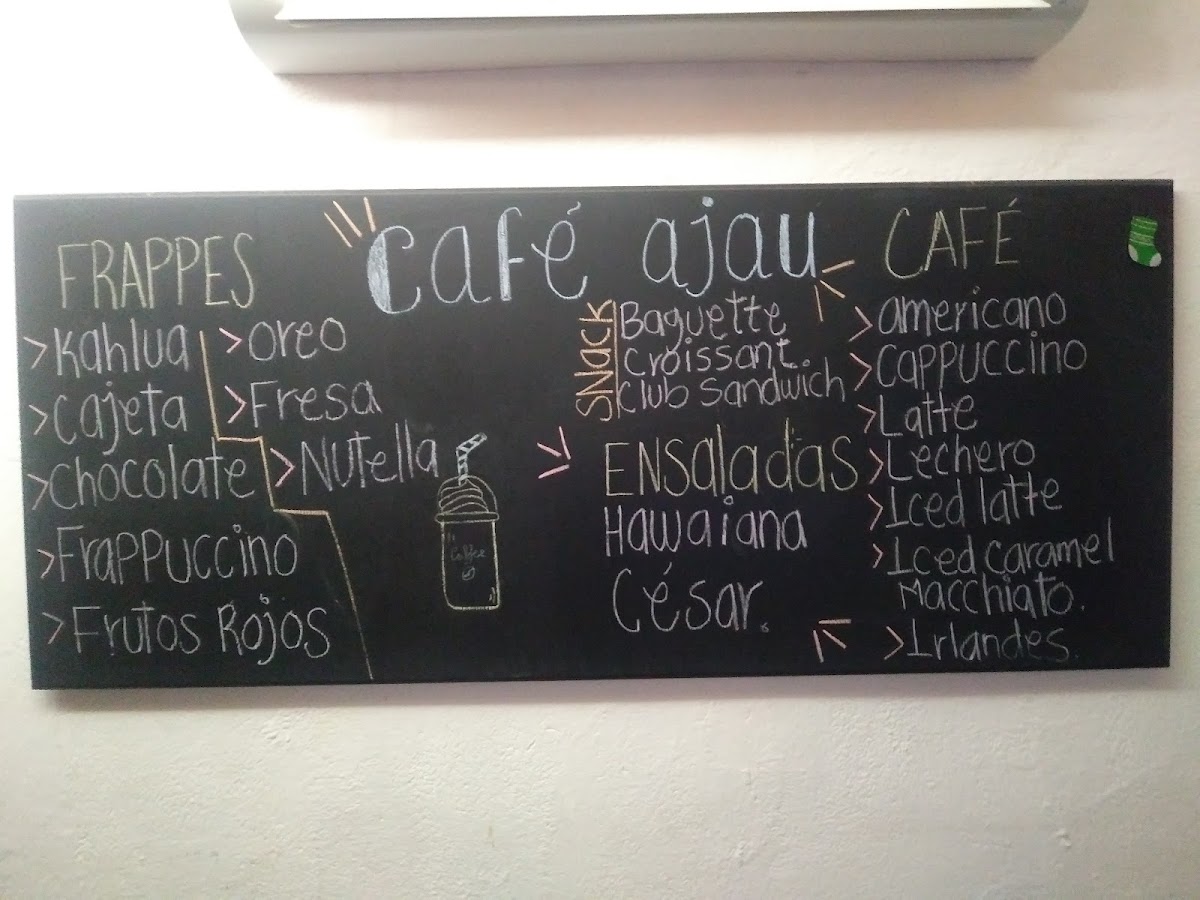 café ajau
FRAPPES
>Kahlua
>Cajeta
>Chocolate
>Frappuccino
>Frutos Rojos
>Oreo
>Fresa
>Nutella
Coffee
SNACK
Baguette
Croissant.
Club Sandwich
ENSaladas
Hawaiana
César.
CAFÉ
>americano
>Cappuccino
>Latte
>Lechero
>Iced latte
>Iced Caramel
Macchiato.
>Irlandes.